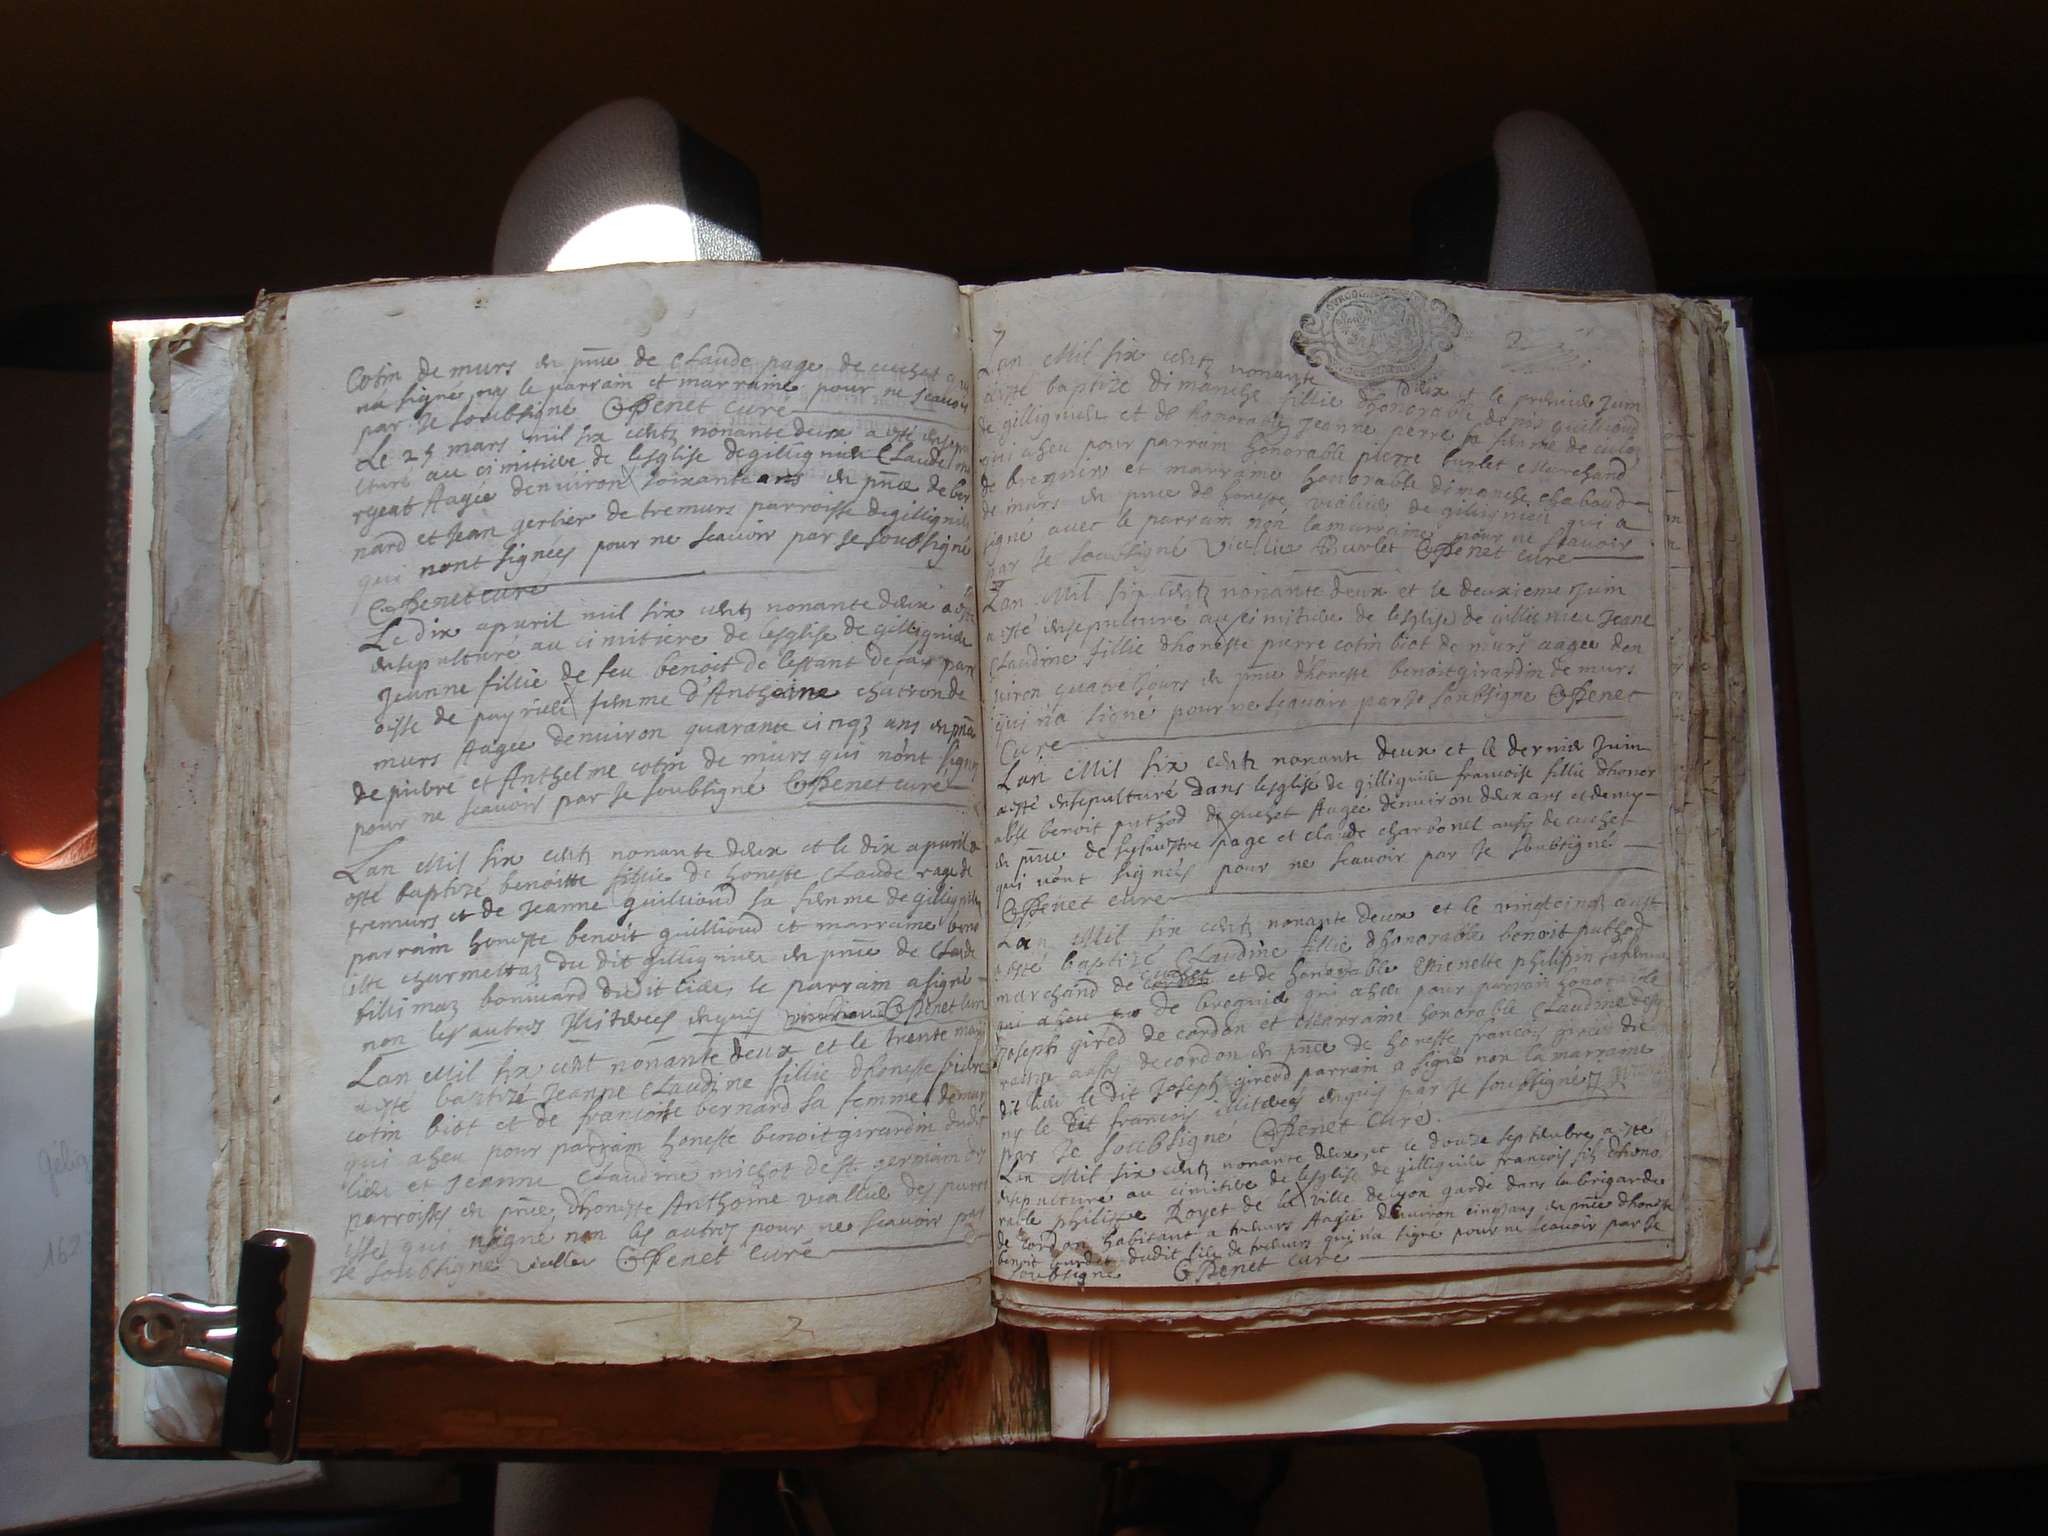 Cotin de murs en pnce de Claude page de cuchet qui
na signé ny le parrain et marraine pour ne scavoir
par Je soubsigné CPenet curé
Le 25 mars mil six centz nonante deux a esté ensepul
turé au cimitiere de lesglise de gillignieu Claude
Aagée denuiron soixante ans en pnce de ber
nard et Jean gerbier de tremurs parroisse de gillignieu
qui nont signées pour ne scavoir par Je soubsigné
CPenet curé
Le dix apuril mil six centz nonante deux a esté
ensepulturé au cimitiere de lesglise de gillignieu
Jeanne fillie de feu benoit de lessant de parr
oisse de peyrieu femme d'Anthoine chatron de
murs Aagée denuiron quarante cinqz ans en pnce
de piebre et Anthelme cotin de murs qui n'ont signez
pour ne scavoir par Je soubsigné CPenet curé
Lan Mil six centz nonante deux et le dix apuril a
esté baptizé benoitte fillie de honeste Claude rage de
tremurs et de Jeanne guillioud sa femme de gillignieu
parrain honeste benoit guillioud et marraine beno
itte charmettaz du dit gillignieu en pnce de Claude
bonivard dudit lieu, le parrain a signé
non les autres Illiterés enquis CPenet curé
Lan Mil six cent nonante deux et le trente may
a esté baptizé Jeanne Claudine fillie dhoneste piebre
cotin biot et de francoise bernard sa femme de murs
qui a heu pour parrain honeste benoit girardin dudit
lieu et Jeanne Claudine michot de st germain des
parroisses en pnce dhoneste Anthoine viallie
qui a signé non les autres pour ne scavoir par
Je soubsigné viallie CPenet curé
2
Lan Mil six centz nonante deux et le premier Juin
a esté baptizé dimanche fillie dhonorable denis guillioud
de gillignieu et de honorable Jeanne perre sa femme de culoz
qui a heu pour parrain honorable pierre burlet Marchand
de bregnier et marraine honorable dimanche chaboud
de murs en pnce de honeste viallie de gillignieu qui a
signé auec le parrain non la marraine pour ne scavoir
par Je soubsigné viallie Burlet CPenet curé
Lan Mil six centz nonante deux et le deuxieme Juin
a esté ensepulturé au cimitiere de lesglise de gillignieu Jeane
Claudine fillie dhoneste pierre cotin biot de murs aagee den
uiron quatre Jours en pnce dhoneste benoit girardin de murs
qui na signé pour ne scavoir par Je soubsigné CPenet
Curé
Lan Mil six centz nonante deux et le dernier Juin
a esté ensepulturé dans lesglise de gillignieu francoise fillie dhonor
able benoit puthod de cuchet Aagée denuiron deux ans et demy
en pnce de syluestre page et claude charbonel aussy de cuchet
qui n'ont signés pour ne scavoir par Je soubsigné
CPenet curé
Lan Mil six centz nonante deux et le vingt cinqz aust
a esté baptizé Claudine fillie dhonorable benoit puthod
marchand de cuchet et de honorable Estienette philipin sa femme
qui a heu de bregnier qui a heu pour parrain honorable
Joseph girod de cordon et Marraine honorable Claudine
aussy de cordon en pnce de honeste francois du
dit lieu le dit Joseph girod parrain a signé non la marraine
ny le dit francois illiterés enquis par Je soubsigné
par Je soubsigné CPenet Curé
Lan Mil six centz nonante deux et le douze septembre a esté
ensepulturé au cimitiere de lesglise de gillignieu francois filz dhono
rable philippe Royet de la ville de lyon garde dans la brigarde
de cordon habitant a tremurs Aagée denuiron cinqz ans en pnce dhoneste
benoit dudit lieu de tremurs qui na signé pour ne scavoir par Je
soubsigné CPenet curé